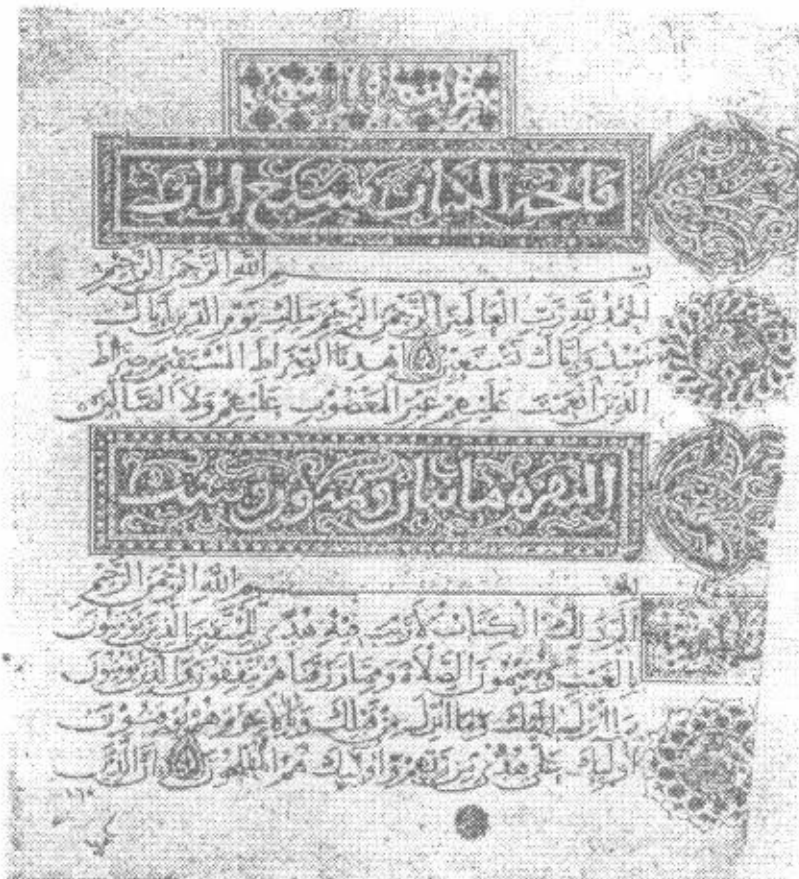 فاتحة الكتاب سبع ايات
بسم الله الرحمن الرحيم
الحمد لله رب العالمين الرحمن الرحيم مالك يوم الدين اياك
نعبد واياك نستعين اهدنا الصراط المستقيم صراط
الذين انعمت عليهم غير المغضوب عليهم ولا الضالين
البقرة مايتان وثمانون وست
بسم الله الرحمن الرحيم
الم ذلك الكتاب لا ريب فيه هدى للمتقين الذين يومنون
بالغيب ويقيمون الصلاة ومما رزقناهم ينفقون والذين يومنون
بما انزل اليك وما انزل من قبلك وبالاخرة هم يوقنون
اوليك على هدى من ربهم واوليك هم المفلحون ان الذين